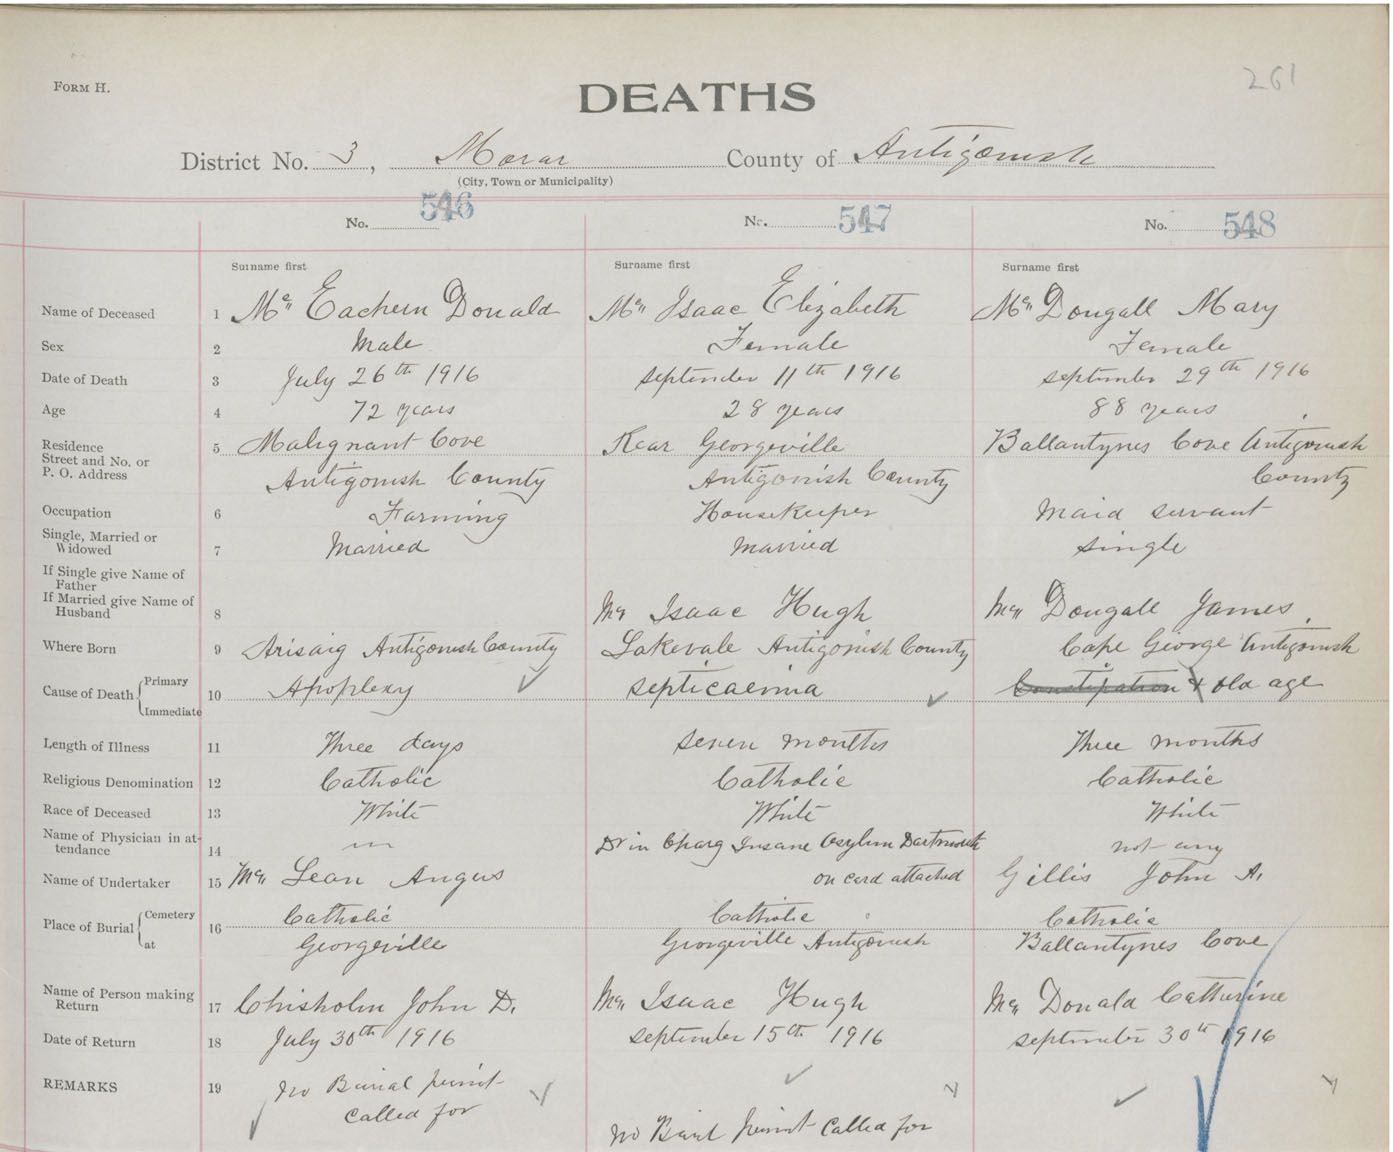 FORM H.
261
DEATHS
District No. 3, Morar County of Antigonish
(City, Town or Municipality)
No. 546 No. 547 No. 548
Surname first Surname first Surname first
Name of Deceased 1 Mc Eachern Donald Mc Isaac Elizabeth Mc Dougall Mary
Sex 2 Male Female Female
Date of Death 3 July 26th 1916 september 11th 1916 september 29th 1916
Age 4 72 years 28 years 88 years
Residence Street and No. or P. O. Address 5 Malignant Cove Rear Georgeville Ballantynes Cove Antigonish
Antigonish County Antigonish County County
Occupation 6 Farming Housekeeper Maid servant
Single, Married or Widowed 7 Married Married single
If Single give Name of Father
If Married give Name of Husband 8 Mc Isaac Hugh Mc Dougall James
Where Born 9 Arisaig Antigonish County Lakevale Antigonish County Cape George Antigonish
Cause of Death { Primary Immediate 10 Apoplexy septicaemia Constipation & old age
Length of Illness 11 Three days seven months Three months
Religious Denomination 12 Catholic Catholic Catholic
Race of Deceased 13 White White White
Name of Physician in attendance 14 Dr in Charg Insane Asylum Dartmouth not any
on card attached
Name of Undertaker 15 Mc Lean Angus Gillis John A.
Place of Burial { Cemetery 16 Catholic Catholic Catholic
at Georgeville Georgeville Antigonish Ballantynes Cove
Name of Person making Return 17 Chisholm John D. Mc Isaac Hugh Mc Donald Catherine
Date of Return 18 July 30th 1916 september 15th 1916 september 30th 1916
REMARKS 19 no Burial permit
called for
no Burial permit called for